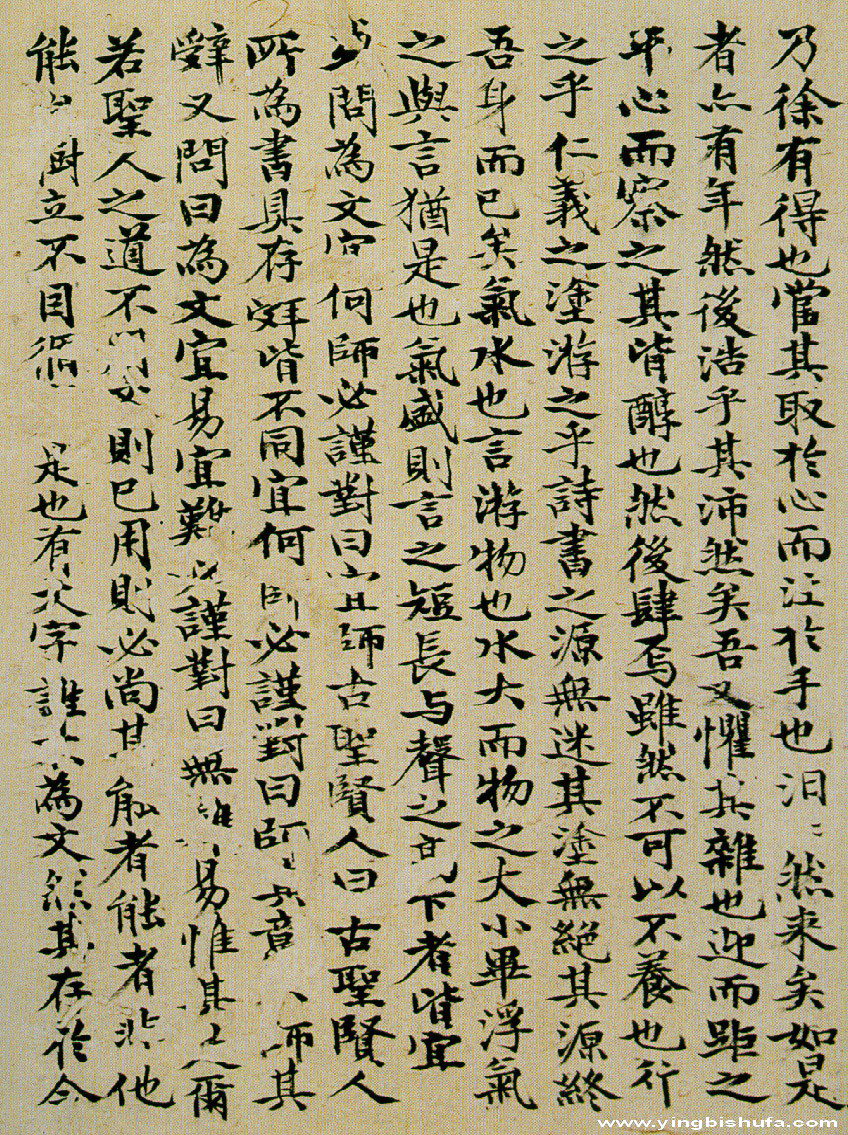 乃徐有得也當其取於心而注於手也汩〻然来矣如是
者亦有年然後浩乎其沛然矣吾又懼其雜也迎而距之
平心而察之其皆醇也然後肆焉雖然不可以不養也行
之乎仁義之塗游之乎詩書之源無迷其塗無絕其源終
吾身而已矣氣水也言游物也水大而物之大小畢浮氣
之與言猶是也氣盛則言之短長与聲之高下者皆宜
問為文宜何師必謹對曰宜師古聖賢人曰古聖賢人
所為書具存辤皆不同宜何師必謹對曰師其意師其
辤又問曰為文宜易宜難必謹對曰無難易惟其是爾
若聖人之道不用文則已用則必尚其能者能者非他
能樹立不因循是也有文字誰不為文然其存於今
www.yingbishufa.com